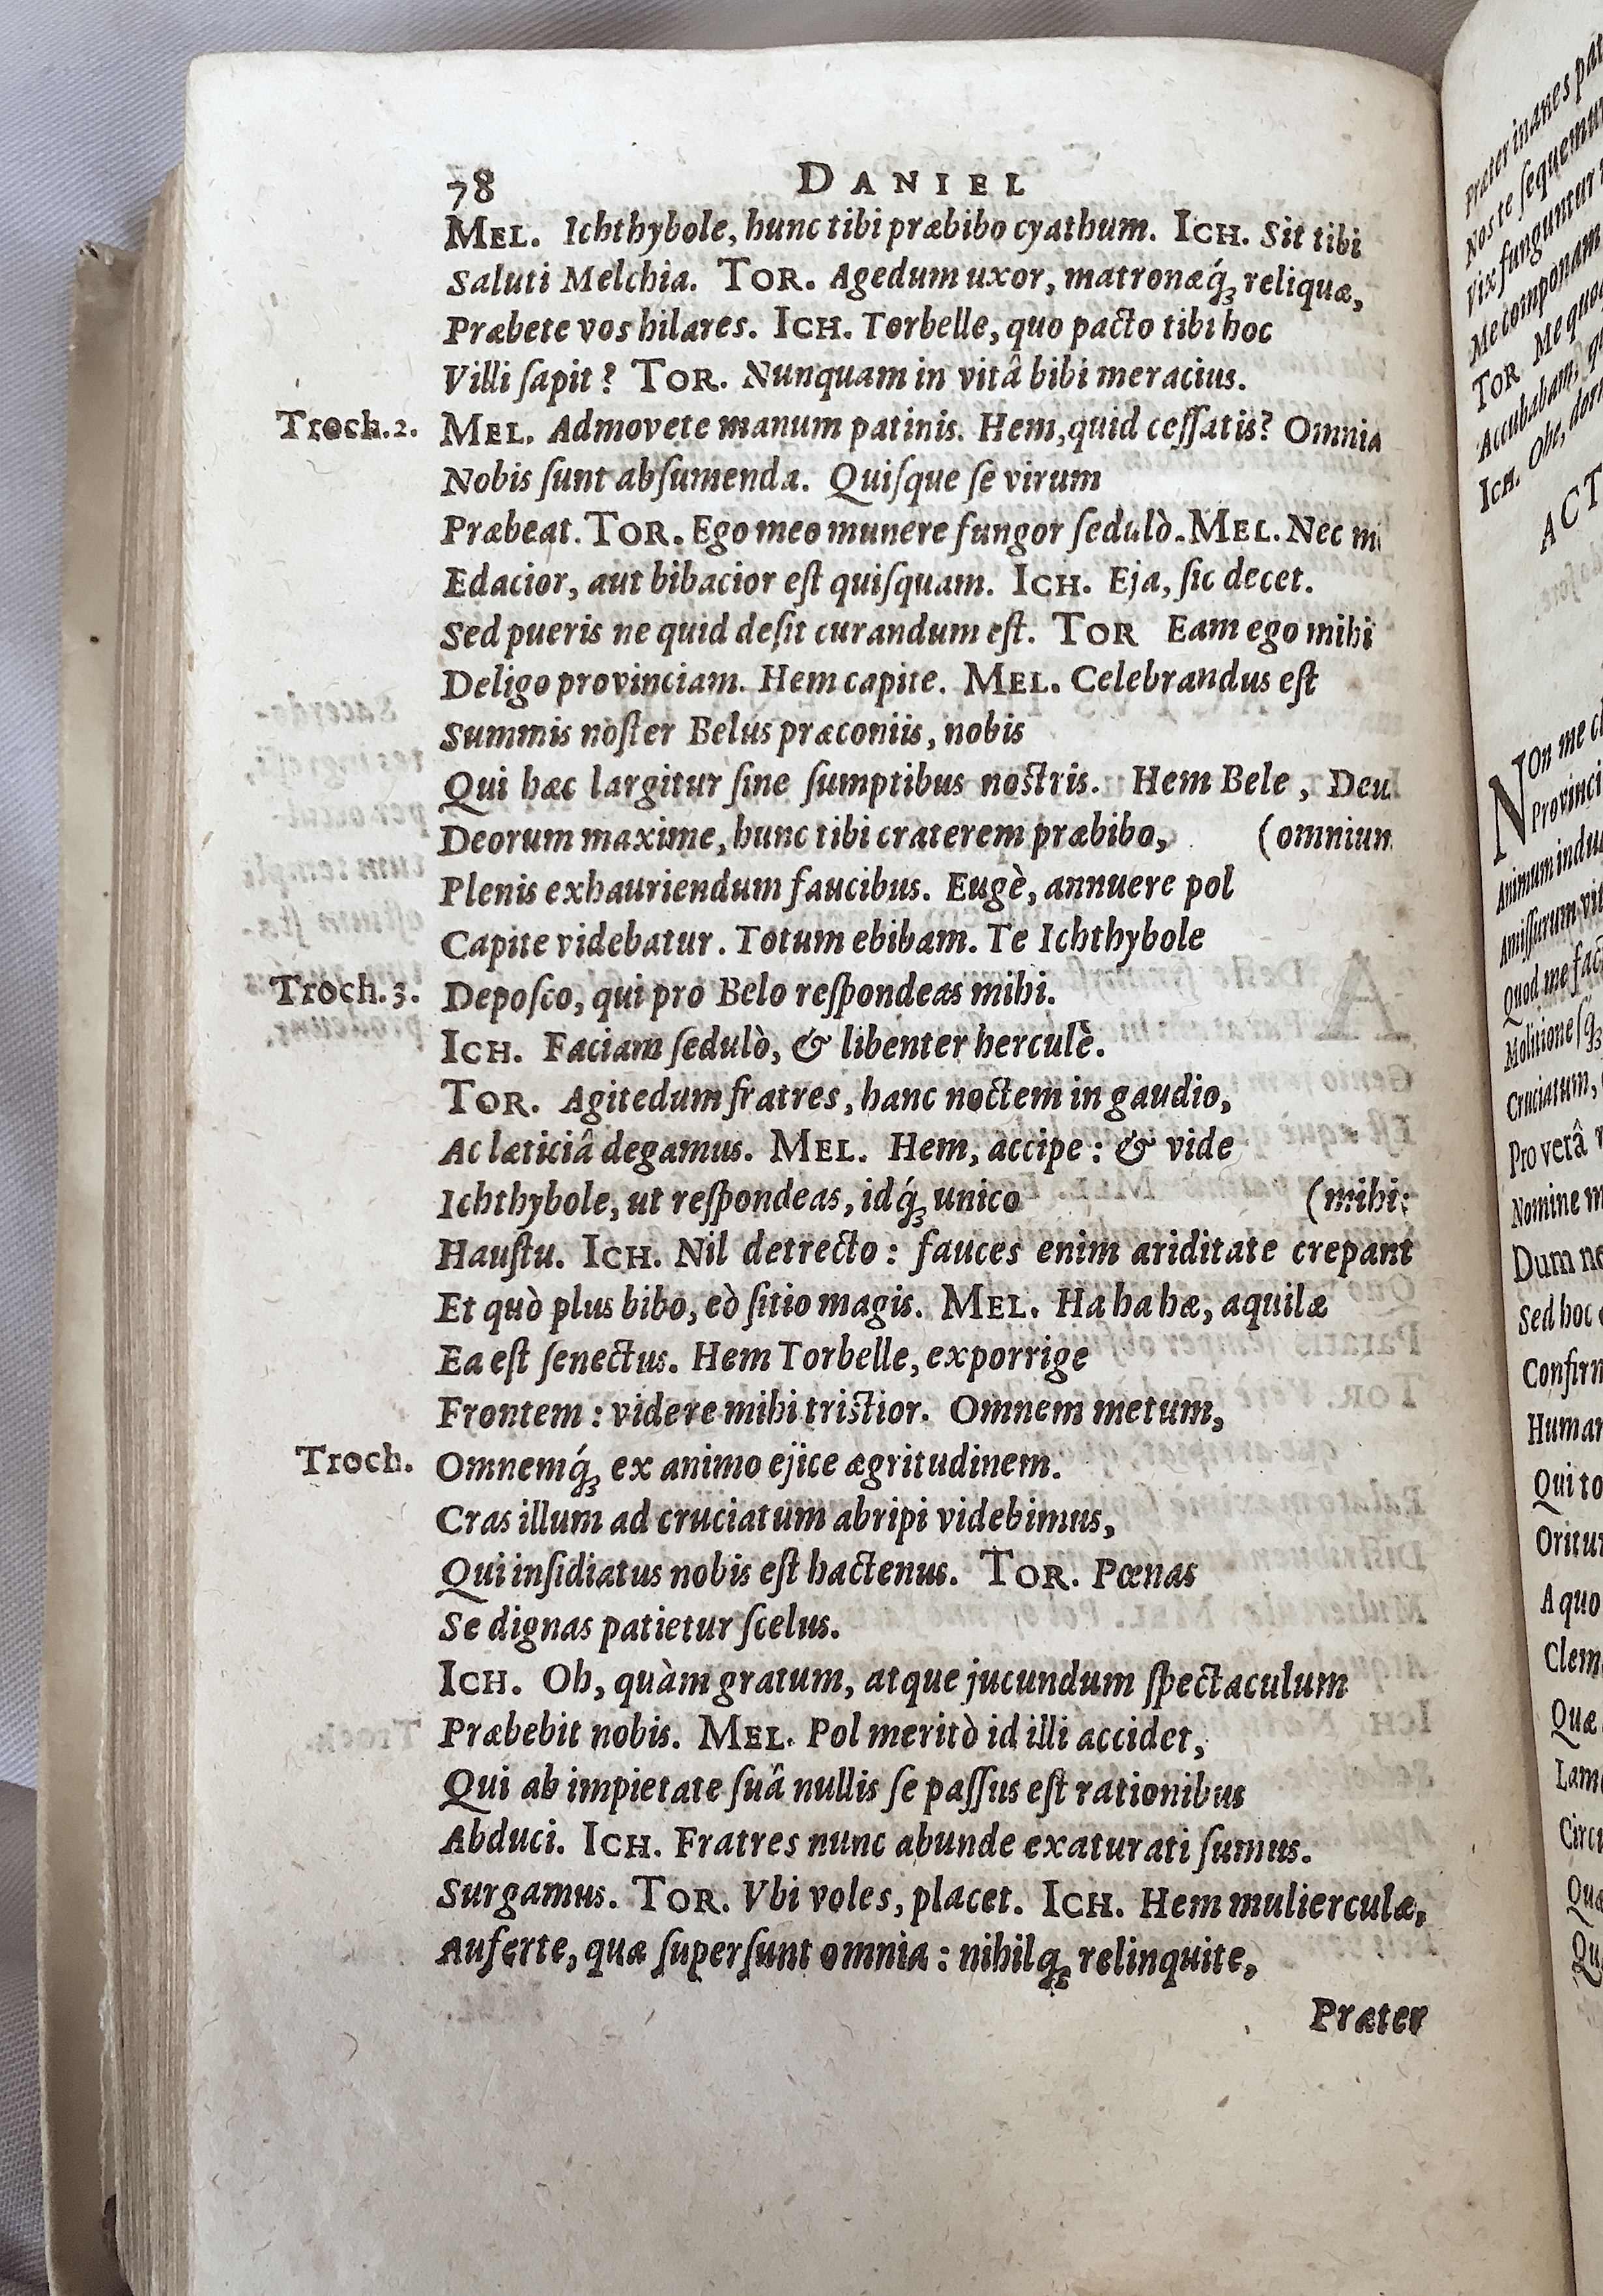 78 DANIEL
MEL. Ichthybole, hunc tibi præbibo cyathum. ICH. Sit tibi
Saluti Melchia. TOR. Agedum uxor, matronæq́ꝫ reliquæ,
Præbete vos hilares. ICH. Torbelle, quo pacto tibi hoc
Villi ſapit? TOR. Nunquam in vitâ bibi meracius.
Troch.2. MEL. Admovete manum patinis. Hem, quid ceſſatis? Omnia
Nobis ſunt abſumenda. Quiſque ſe virum
Præbeat. TOR. Ego meo munere fungor ſedulò. MEL. Nec
Edacior, aut bibacior eſt quiſquam. ICH. Eja, ſic decet.
Sed pueris ne quid deſit curandum eſt. TOR Eam ego mihi
Deligo provinciam. Hem capite. MEL. Celebrandus eſt
Summis noſter Belus præconiis, nobis
Qui hæc largitur ſine ſumptibus noſtris. Hem Bele, Deu
Deorum maxime, hunc tibi craterem præbibo, (omniun
Plenis exhauriendum faucibus. Eugè, annuere pol
Capite videbatur. Totum ebibam. Te Ichthybole
Troch.3. Depoſco, qui pro Belo reſpondeas mihi.
ICH. Faciam ſedulò, & libenter herculè.
TOR. Agitedum fratres, hanc noctem in gaudio,
Ac læticiâ degamus. MEL. Hem, accipe: & vide
Ichthybole, ut reſpondeas, idq́ꝫ unico (mihi:
Hauſtu. ICH. Nil detrecto: fauces enim ariditate crepant
Et quò plus bibo, eò ſitio magis. MEL. Ha ha hæ, aquilæ
Ea eſt ſenectus. Hem Torbelle, exporrige
Frontem: videre mihi triſtior. Omnem metum,
Troch. Omnemq́ꝫ ex animo ejice ægritudinem.
Cras illum ad cruciatum abripi videbimus,
Qui inſidiatus nobis eſt hactenus. TOR. Pœnas
Se dignas patietur ſcelus.
ICH. Oh, quàm gratum, atque jucundum ſpectaculum
Præbebit nobis. MEL. Pol meritò id illi accidet,
Qui ab impietate ſuâ nullis ſe paſſus eſt rationibus
Abduci. ICH. Fratres nunc abunde exaturati ſumus.
Surgamus. TOR. Vbi voles, placet. ICH. Hem mulierculæ,
Auferte, quæ ſuperſunt omnia: nihilqꝫ relinquite,
Præter
Præter inanes
Nos te ſequemur
Vix funguntur
Me componam
TOR Me quoq
Accubabam,
ICH. Ohe,
ACT
NOn me
Provinci
Animum
Amiſſurum
Quod me
Molitioneſqꝫ
Cruciatum,
Pro verâ
Nomine
Dum ne
Sed hoc
Confirm
Human
Qui to
Oritur
A quo
Clem
Quæ
Lam
Circ
Qua
Qu